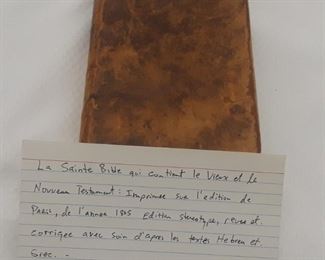 La Sainte Bible qui contient le Vieux et le
Nouveau Testament: Imprimee sur l'edition de
Paris, de l'annee 1805 Edition stereotype, revue et
corrigee avec soin d'apres les textes Hebreu et
Grec. -